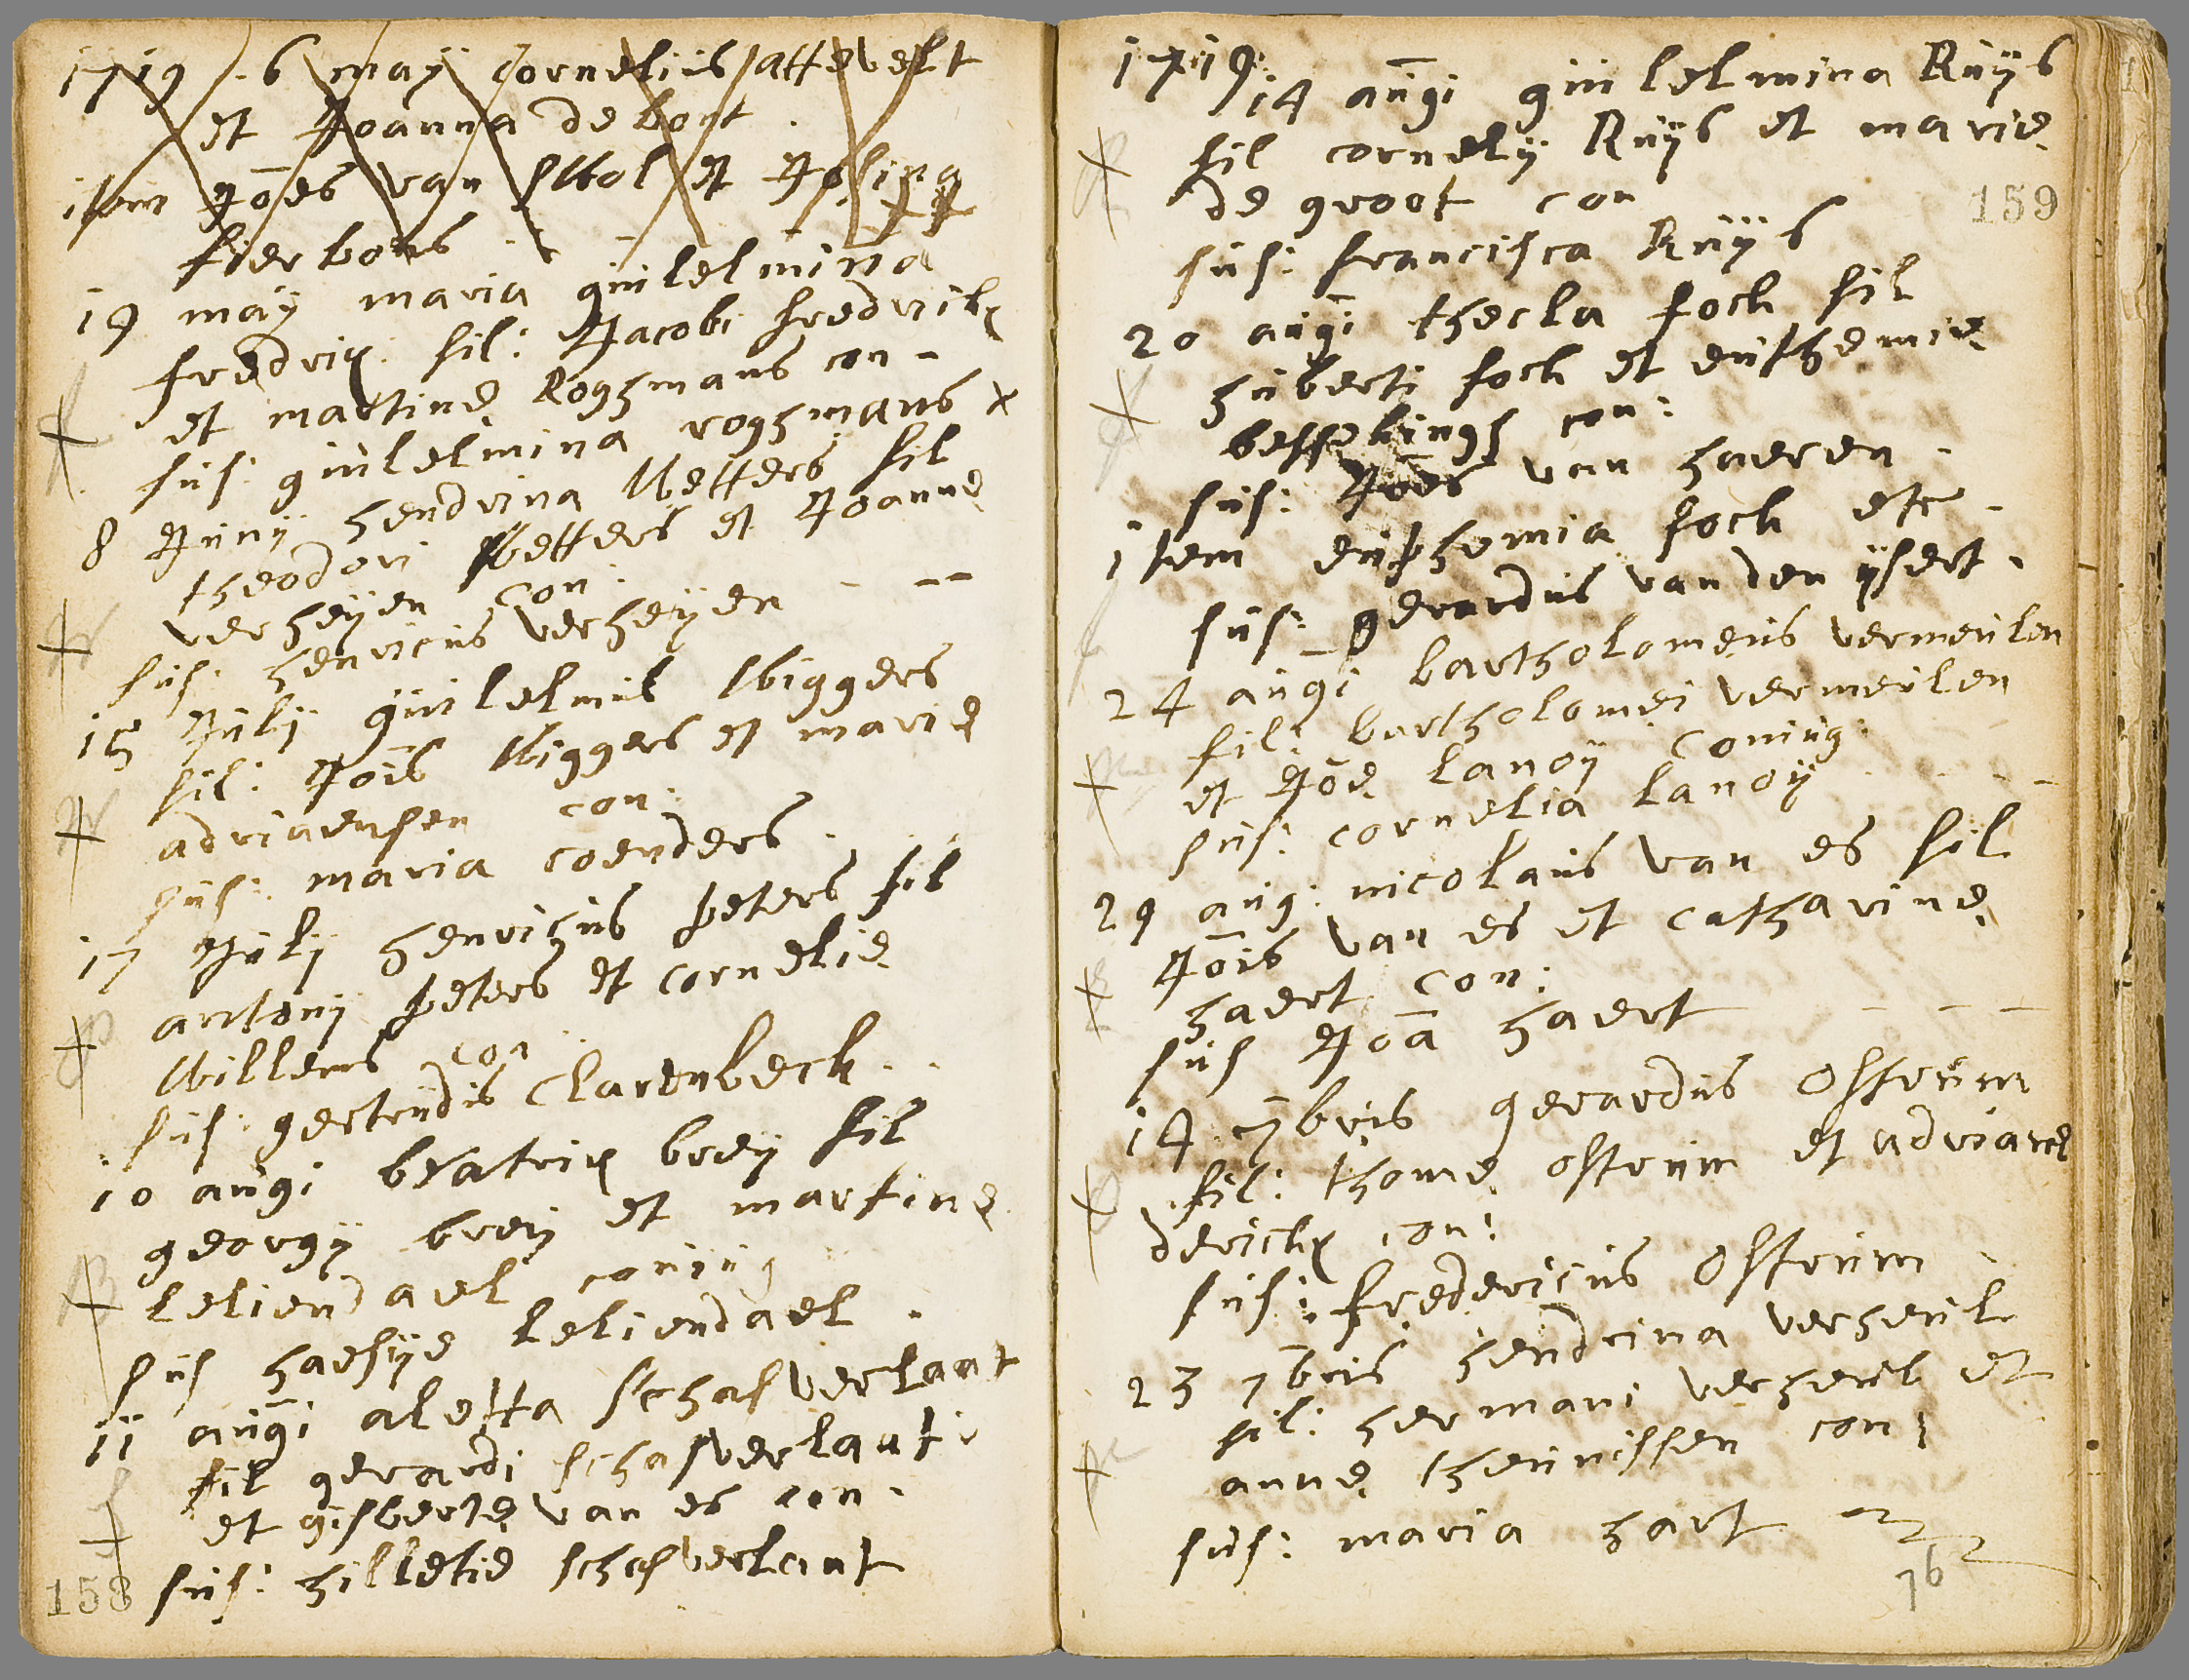 1719 . 6 may Cornelius attevelt
et Joanna de bont .
item Jōes van Wol et Josina
fierbons
19 may maria guilelmina
fredrix fil: Jacobi fredrikx
et martinę Roghmans con -
sus: guilelmina roghmans x
8 Juny hendrina Wetters fil
theodori Wetters et Joannę
verheyen con:
sus: henricus verheyen - --
15 July guilelmus Wiggers
fil: Jōis Wiggers et marię
adriaensen con:
sus: maria coenders .
17 July henricus peters fil
antony peters et cornelię
Willems con
sus: gertrudis Clarenbeck . .
10 augi beatrix brey fil
georgy brey et martinę
leliendael coniug
sus haesye leliendael .
11 augi aletta schasverlaat
fil gerardi schasverlaut.
et gisbertę van es con.
158 sus: hilletie schasverlaut
1719
14 augi guilelmina Ruys
fil cornely Ruys et marię
de groot con
159
sus: francisca Ruys
20 augi thecla foch fil
huberti foch et euthemię
con:
sus: Jōes van haeren .
item euphemia foch etc -
sus: gerardus van den ysert .
24 augi bartholomeus vermeulen
fil: bartholomei vermeulen
et Jōę lanoy coniug:
sus: cornelia lanoy - - -
29 aug: nicolaus van es fil
Jōis van es et catharinę
haert con:
sus Joā haert - - -
14 7bris gerardus osterum
fil: thomę osterum et adrianę
derickx con:
sus: fredericus osterum
23 7bris hendrina verheul
fil: hermani verheul et
annę theunissen con:
sus: maria hart
76